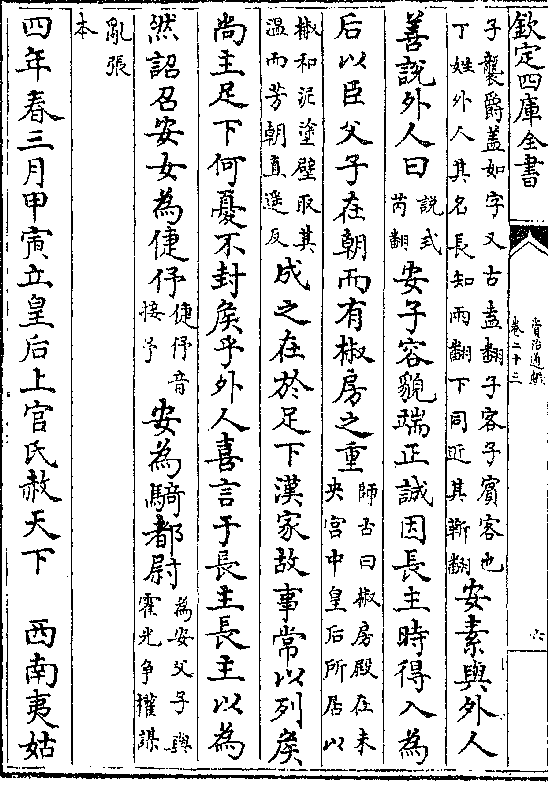 欽定四庫全書
資治通鑑
卷二十三
六
子襲爵蓋如字又古盍翻子客子賓客也
丁姓外人其名長知兩翻下同近其靳翻
安素與外人
善說外人曰
說式
芮翻
安子容貌端正誠因長主時得入為
后以臣父子在朝而有椒房之重
師古曰椒房殿在未
央宫中皇后所居以
椒和泥塗壁取其
温而芳朝直遥反
成之在於足下漢家故事常以列矦
尚主足下何憂不封矦乎外人喜言于長主長主以為
然詔召安女為倢伃
倢伃音
接予
安為騎都尉
為安父子與
霍光争權謀
亂張
本
四年春三月甲寅立皇后上官氏赦天下　西南夷姑